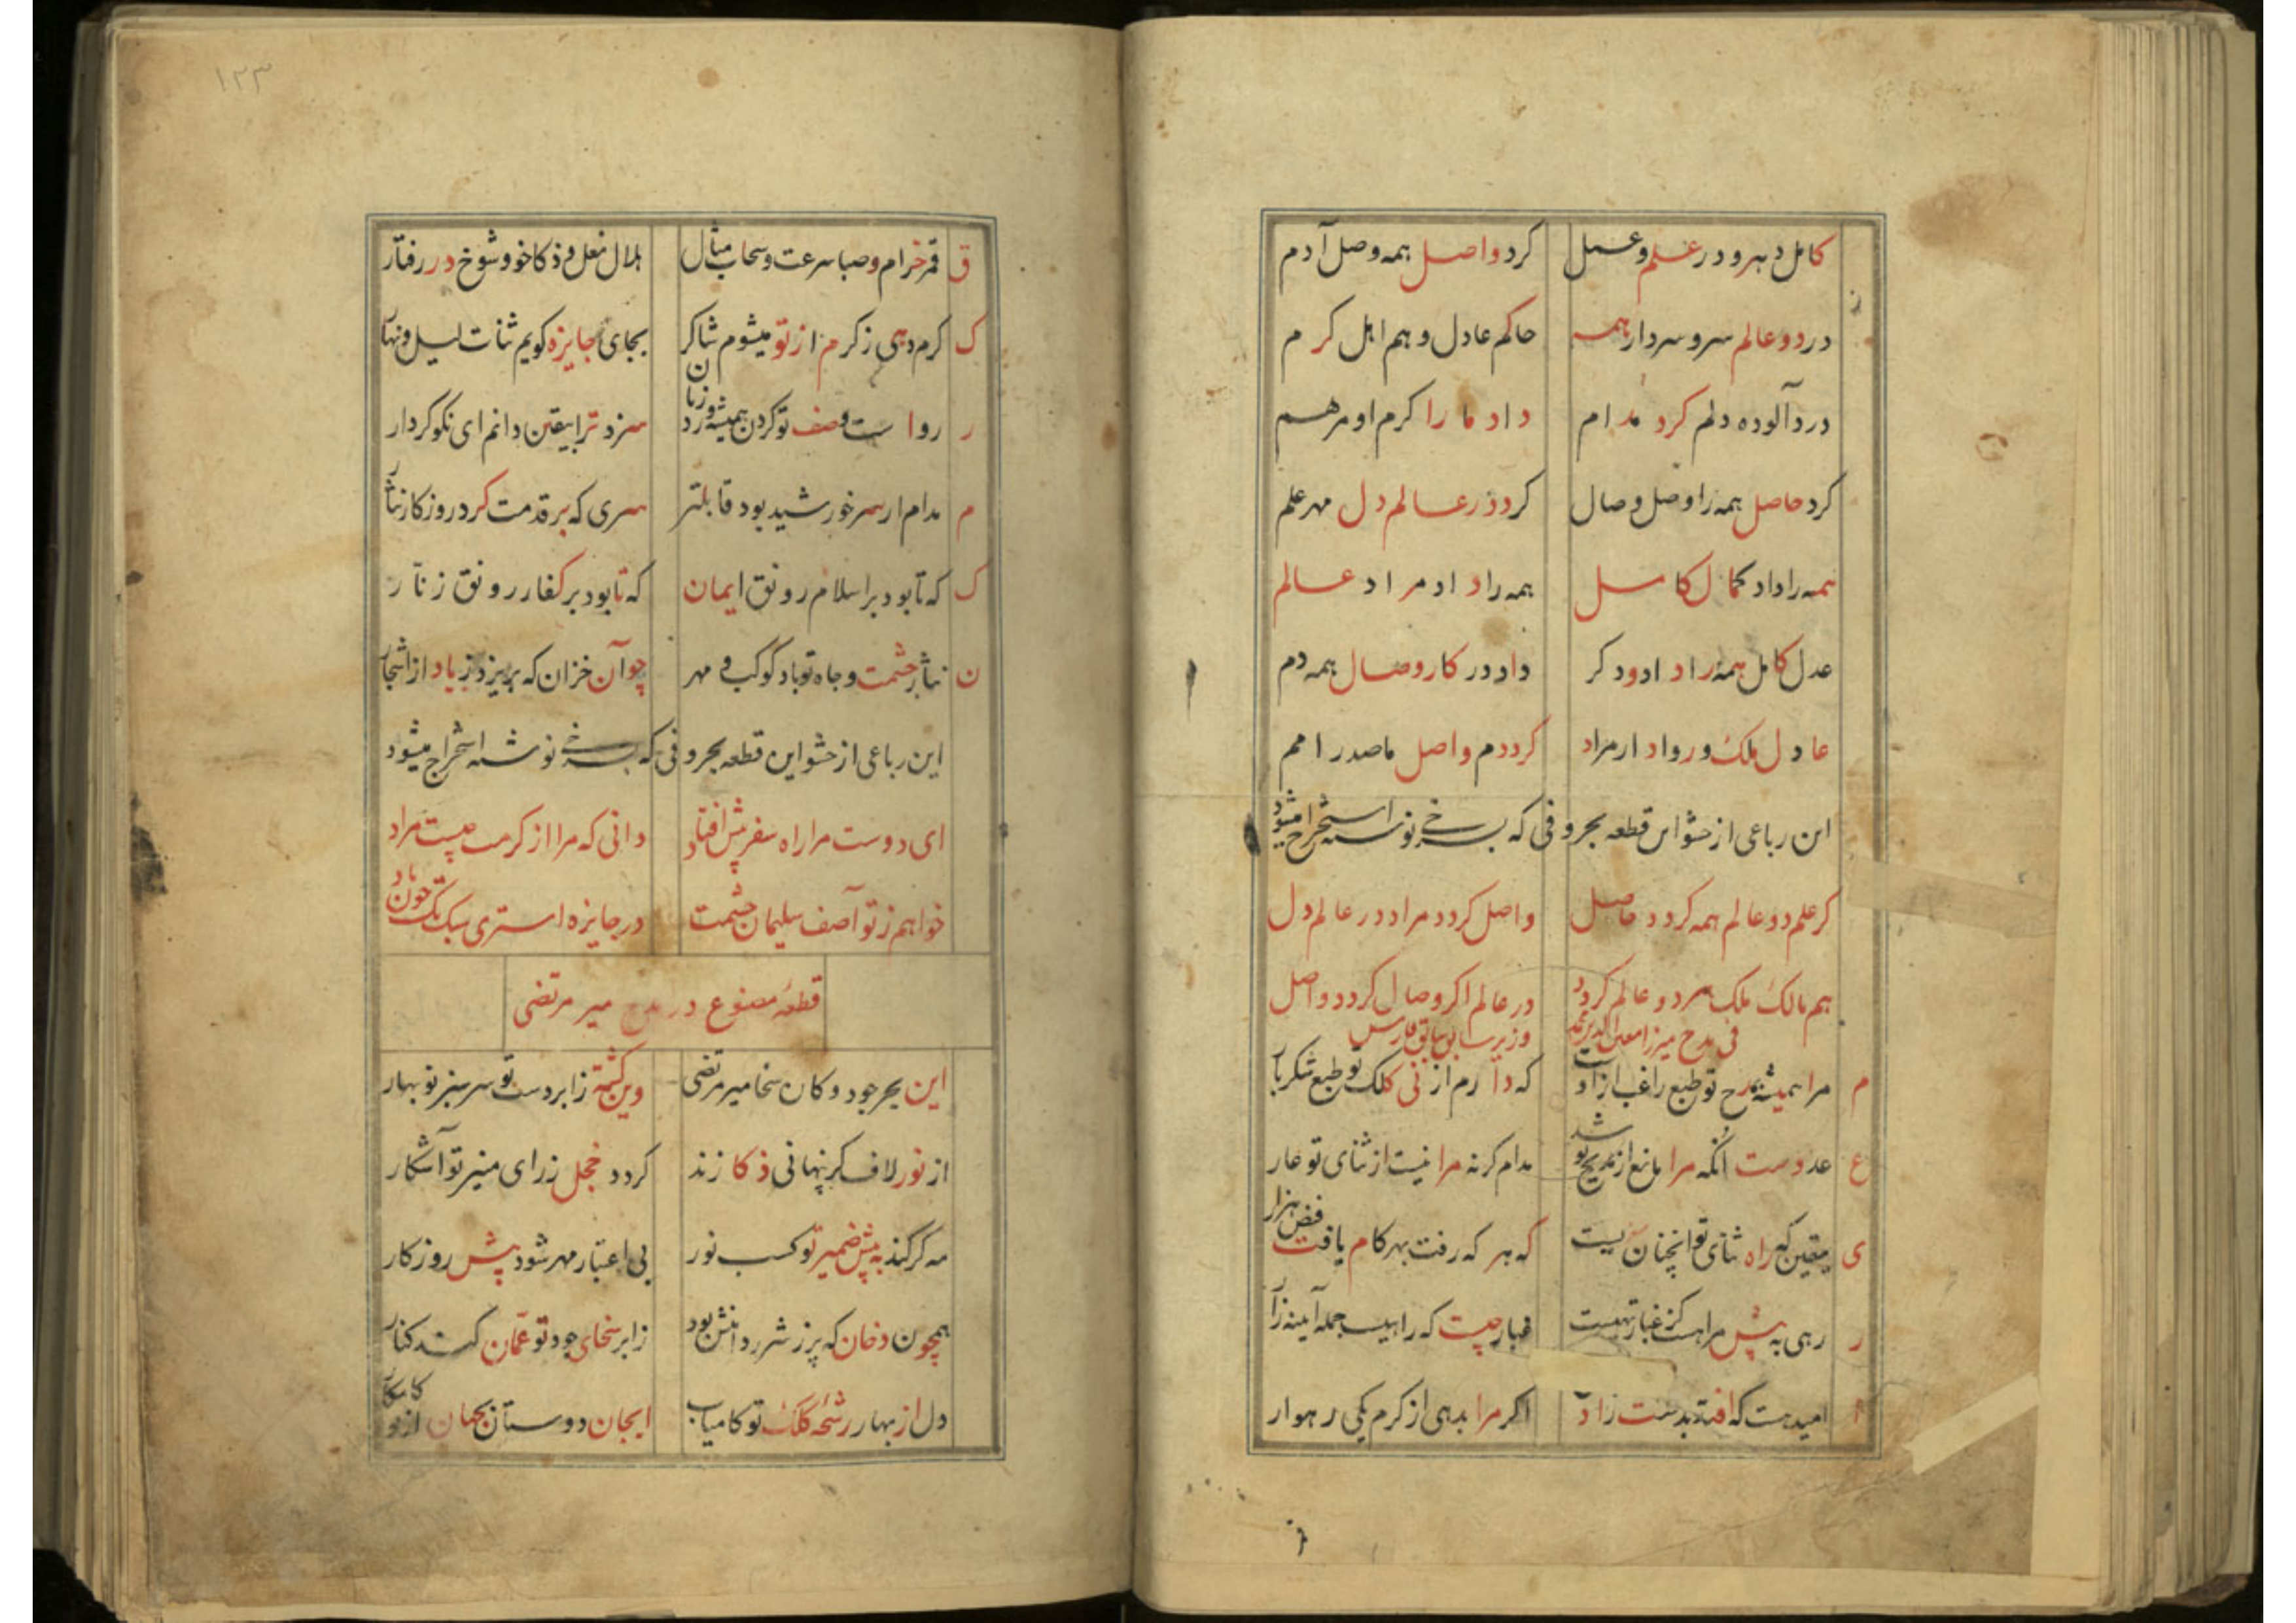 کامل دهر و در علم و عمل کرد واصل همه وصل آدم
در دو عالم سر و سردار همه حاکم عادل و هم اهل کرم
درد آلوده دلم کرد مدام داد ما را کرم او مرهم
کرد حاصل همه را وصل و صال کرد در عالم دل مهر علم
همه را داد کمال کامل همه را داد مراد عالم
عدل کامل همه را داد و دکر داد در کار وصال همه دم
عادل ملک و رواد ار مراد کردم واصل ما صدر امم
این رباعی از حشو این قطعه بحروفی که بسرخی نوشته استخراج میشود
کر علم دو عالم همه کردد حاصل واصل کردد مراد در عالم دل
هم مالک ملک سر دو عالم کردد در عالم اکر وصال کردد واصل
فی مدح میرزا معین الدین محمد وزیر سابق فارس
م مرا همیشه بمدح تو طبع راغب ازآنست که دارم از نی کلک تو طبع شکربار
ع عدوست آنکه مرا مانع از مدیح تو شد مدام کرنه مرا نیست از ثنای تو عار
ی یقین که راه ثنای تو آنچنان نیست که هر که رفت بهر کام یافت فیض هزار
ر رهی به پیش مراهست کز غبار تهیست غبار چیست که راهیست جمله آینه زار
ا امید هست که افتد بدست زاد اکر مرا بدهی از کرم یکی رهوار
۱۲۳
ق قمر خرام و صبا سرعت و سحاب مثال هلال نعل و ذکا خو و شوخ در رفتار
ک کرم دهی ز کرم از تو میشوم شاکر بجای جایزه کویم ثنات لیل و نهار
ر رواست وصف تو کردن همیشه ورد زبان سزد ترا بیقین دانم ای نکو کردار
م مدام ار سر خورشید بود قابلتر سری که بر قدمت کرد روزکار نثار
ک که تا بود بر اسلام رونق ایمان که تا بود بر کفار رونق زنار
ن نثار حشمت و جاه تو باد کوکب و مهر چو آن خزان که بریزد ز باد از اشجار
این رباعی از حشو این قطعه بحروفی که بسرخی نوشته استخراج میشود
ای دوست مرا راه سفر پیش افتاد دانی که مرا از کرمت چیست مراد
خواهم ز تو آصف سلیمان حشمت در جایزه استری سبک تک چون باد
قطعه مصنوع در مدح میر مرتضی
این بحر جود و کان سخا میر مرتضی وین کشته ز ابر دست تو سر سبز نوبهار
از نور لاف کر نهانی ذکا زند کردد خجل ز رای منیر تو آشکار
مه کر کند به پیش ضمیر تو کسب نور بی اعتبار مهر شود پیش روزکار
همچون دخان که پر ز شرر دانش بود ز ابر سخای جود تو عمان کند کنار
دل از بهار رشحه کلک تو کامیاب ای جان دوستان بجهان از تو کامکار